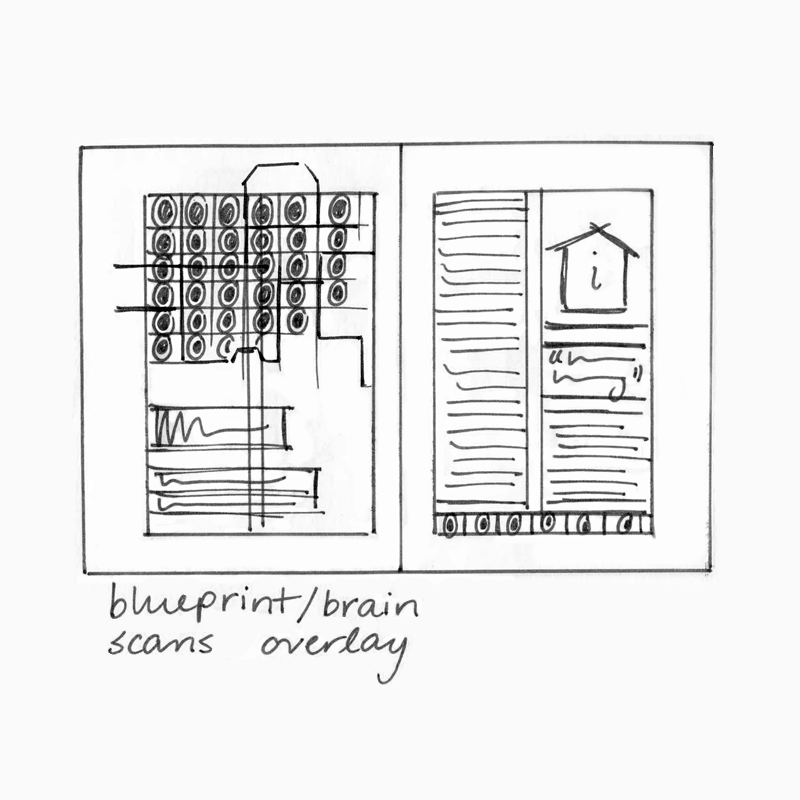 i
blueprint/brain
scans overlay